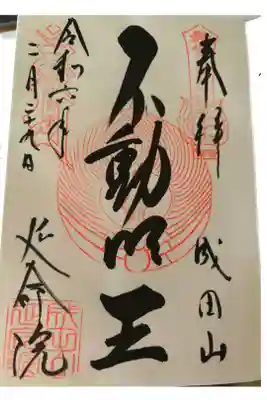 奉拝
成田山
不動明王
令和六年
二月二十九日
延命院